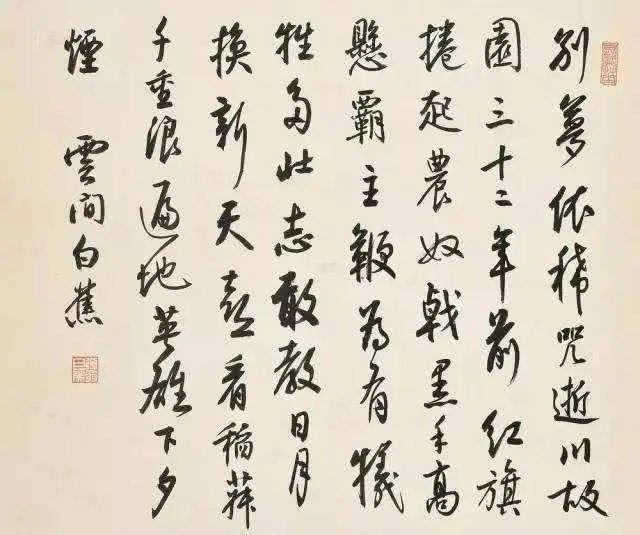 别夢依稀咒逝川故
園三十二年前紅旗
捲起農奴戟黑手高
懸霸主鞭為有犧
牲多壯志敢教日月
換新天喜看稻菽
千重浪遍地英雄下夕
煙 雲間白蕉